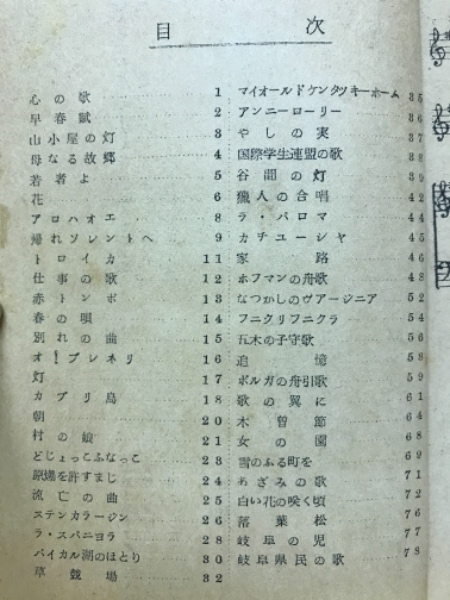 目次
心の歌 1
早春賦 2
山小屋の灯 3
母なる故郷 4
若者よ 5
花 6
アロハオエ 8
帰れソレントへ 9
トロイカ 11
仕事の歌 12
赤トンボ 13
春の唄 14
別れの曲 15
オ!ブレネリ 16
灯 17
カプリ島 18
朝 20
村の娘 21
どじょっこふなっこ 23
原爆を許すまじ 24
流亡の曲 25
ステンカラージン 26
ラ・スパニョラ 28
バイカル湖のほとり 30
草競場 32
マイオールドケンタッキーホーム 35
アンニーローリー 36
やしの実 37
国際学生連盟の歌 38
谷間の灯 39
猟人の合唱 42
ラ・パロマ 44
カチューシヤ 45
家路 46
ホフマンの舟歌 48
なつかしのヴァージニア 52
フニクリフニクラ 54
五木の子守歌 56
追憶 58
ボルガの舟引歌 59
歌の翼に 61
木曽節 64
女の園 68
雪のふる町を 69
あざみの歌 71
白い花の咲く頃 72
落葉松 76
岐阜の児 77
岐阜県民の歌 78